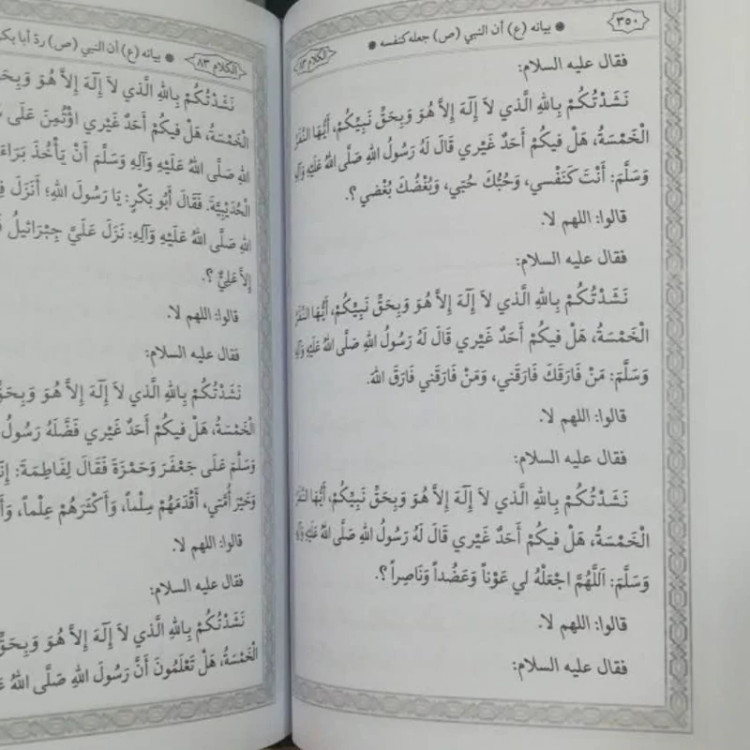 ٣٥٠ • بيانه (ع) أن النبي (ص) جعله كنفسه • الكلام ٨٣
فقال عليه السلام:
نَشَدْتُكُمْ بِاللهِ الَّذي لاَ إِلَهَ إِلاَّ هُوَ وَبِحَقِّ نَبِيِّكُمْ، أَيُّهَا النَّفَرُ
الْخَمْسَةُ، هَلْ فيكُمْ أَحَدٌ غَيْري قَالَ لَهُ رَسُولُ اللهِ صَلَّى اللهُ عَلَيْهِ وَآلِهِ
وَسَلَّمَ: أَنْتَ كَنَفْسي، وَحُبُّكَ حُبّي، وَبُغْضُكَ بُغْضي؟.
قالوا: اللهم لا.
فقال عليه السلام:
نَشَدْتُكُمْ بِاللهِ الَّذي لاَ إِلَهَ إِلاَّ هُوَ وَبِحَقِّ نَبِيِّكُمْ، أَيُّهَا النَّفَرُ
الْخَمْسَةُ، هَلْ فيكُمْ أَحَدٌ غَيْري قَالَ لَهُ رَسُولُ اللهِ صَلَّى اللهُ عَلَيْهِ وَآلِهِ
وَسَلَّمَ: مَنْ فَارَقَكَ فَارَقَني، وَمَنْ فَارَقَني فَارَقَ اللهَ.
قالوا: اللهم لا.
فقال عليه السلام:
نَشَدْتُكُمْ بِاللهِ الَّذي لاَ إِلَهَ إِلاَّ هُوَ وَبِحَقِّ نَبِيِّكُمْ، أَيُّهَا النَّفَرُ
الْخَمْسَةُ، هَلْ فيكُمْ أَحَدٌ غَيْري قَالَ لَهُ رَسُولُ اللهِ صَلَّى اللهُ عَلَيْهِ وَآلِهِ
وَسَلَّمَ: اَللَّهُمَّ اجْعَلْهُ لي عَوْناً وَعَضُداً وَنَاصِراً؟.
قالوا: اللهم لا.
فقال عليه السلام:
الكلام ٨٣ • بيانه (ع) أن النبي (ص) ردّ أبا بكر
نَشَدْتُكُمْ بِاللهِ الَّذي لاَ إِلَهَ إِلاَّ هُوَ وَبِحَقِّ
الْخَمْسَةُ، هَلْ فيكُمْ أَحَدٌ غَيْري اؤْتُمِنَ عَلَى
اللهِ صَلَّى اللهُ عَلَيْهِ وَآلِهِ وَسَلَّمَ أَنْ يَأْخُذَ بَرَاءَةَ
الْحُدَيْبِيَّةَ. فَقَالَ أَبُو بَكْرٍ: يَا رَسُولَ اللهِ؛ أَنَزَلَ
اللهِ صَلَّى اللهُ عَلَيْهِ وَآلِهِ: نَزَلَ عَلَيَّ جِبْرَائيلُ
إِلاَّ عَلِيٌّ؟.
قالوا: اللهم لا.
فقال عليه السلام:
نَشَدْتُكُمْ بِاللهِ الَّذي لاَ إِلَهَ إِلاَّ هُوَ وَبِحَقِّ
الْخَمْسَةُ، هَلْ فيكُمْ أَحَدٌ غَيْري فَضَّلَهُ رَسُولُ
وَسَلَّمَ عَلَى جَعْفَرَ وَحَمْزَةَ فَقَالَ لِفَاطِمَةَ:
وَخَيْرَ أُمَّتي، أَقْدَمَهُمْ سِلْماً، وَأَكْثَرَهُمْ عِلْماً،
قالوا: اللهم لا.
فقال عليه السلام:
نَشَدْتُكُمْ بِاللهِ الَّذي لاَ إِلَهَ إِلاَّ هُوَ وَبِحَقِّ
الْخَمْسَةُ، هَلْ تَعْلَمُونَ أَنَّ رَسُولَ اللهِ صَلَّى اللهُ